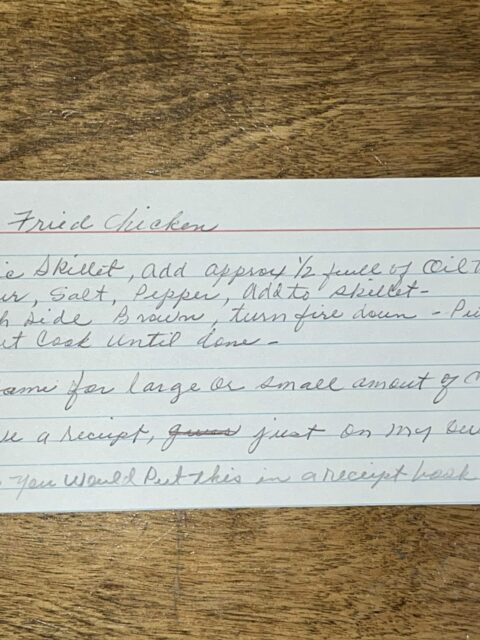 Fried Chicken
ic Skillet, add approx 1/2 full of Oil
ur, Salt, Pepper, add to skillet-
h side Brown, turn fire down - Pu
ut Cook until done-
ame for large or small amout of
ve a receipt, just on my ow
you would Put this in a receipt book